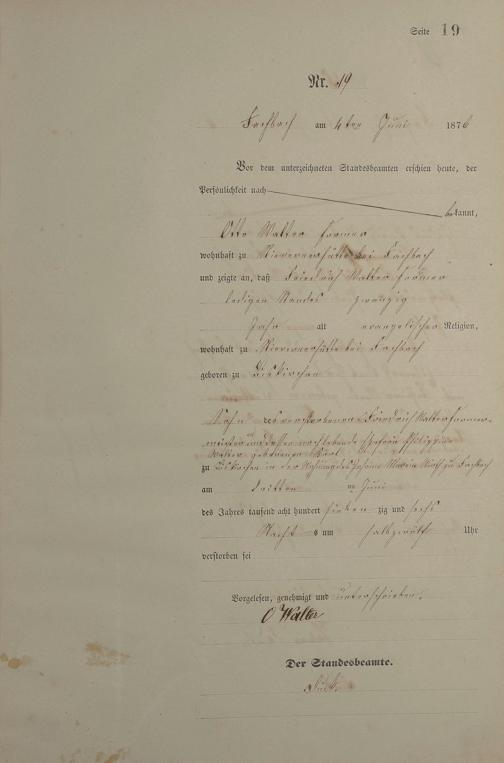 Seite 19
Nr. 19
Fachbach am 4ten Juni 1876
Vor dem unterzeichneten Standesbeamten erschien heute, der
Persönlichkeit nach
bekannt,
Otto Walter Former
wohnhaft zu Nievernerhütte bei Fachbach
und zeigte an, daß Friedrich Walter Former
ledigen Standes zwanzig
Jahr alt evangelischer Religion,
wohnhaft zu Nievernerhütte bei Fachbach
geboren zu
Sohn des verstorbenen Friedrich Walter Former-
meister und dessen noch lebende Ehefrau Philippine
Walter geborenen
zu in der Wohnung des Johann zu Fachbach
am dritten Juni
des Jahres tausend acht hundert sieben zig und sechs
Nachts um halbzwölf Uhr
verstorben sei
Vorgelesen, genehmigt und unterschrieben.
O Walter
Der Standesbeamte.